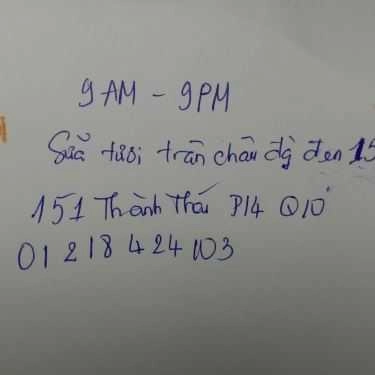 9AM - 9PM
Sữa tươi trân châu đg đen 15
151 Thành Thái P14 Q10
01 218 424 103